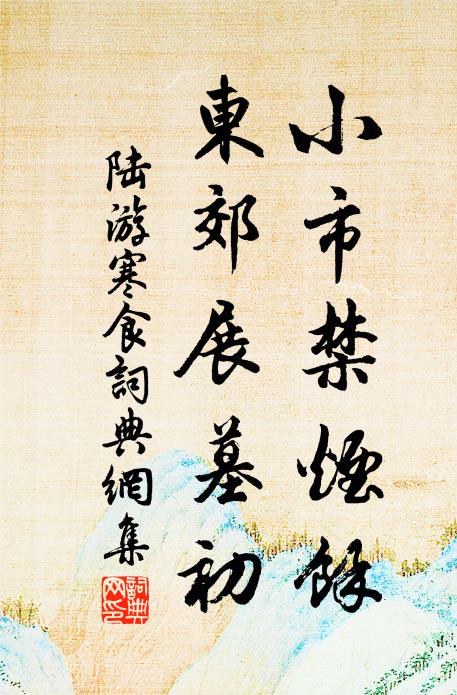 小市禁煙餘
東郊展墓初
陆游寒食詞典網集
詞典